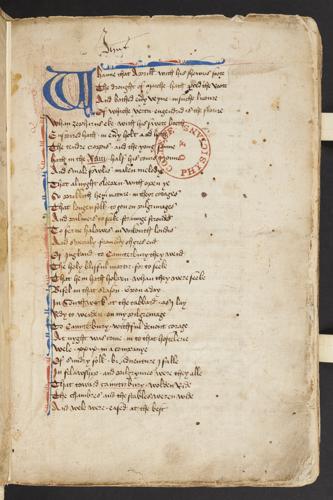 Whanne that Aprill with his showres sote
The drought of marche hath the rote
And bathed euy veyne in suche licoure
Of whiche vertu engendrid is the floure
Whan zephirus eke with his swete breth
hath in euy holt and heth
The tendre croppis and the yong sonne
hath in the half his cours
And smale foules maken melodie
That al nyght slepen with open ye
So pricketh hem nature in corages
That longen folk to gon on pilgrimages
And palmers to seke straunge strondes
To ferne halowes in londis
And specialy from shires end
Of Ingland to Caunterbury they wend
The holy blisful martir for to seke
That hem hath holpen whan they were seke
Bifel in that seson on a day
In Southwerk at the tabbard as I lay
Redy to wenden on my pilgremage
To Caunterbury with ful deuout corage
At nyght was come in to that hostelrie
Welle xxix in a companye
Of sondry folk bi aduenture falle
In felawship and pilgrimes were they alle
That toward Caunterbury wolden ride
The chambres and the stables weren wide
And wele were esed at the best
COLL REG MED